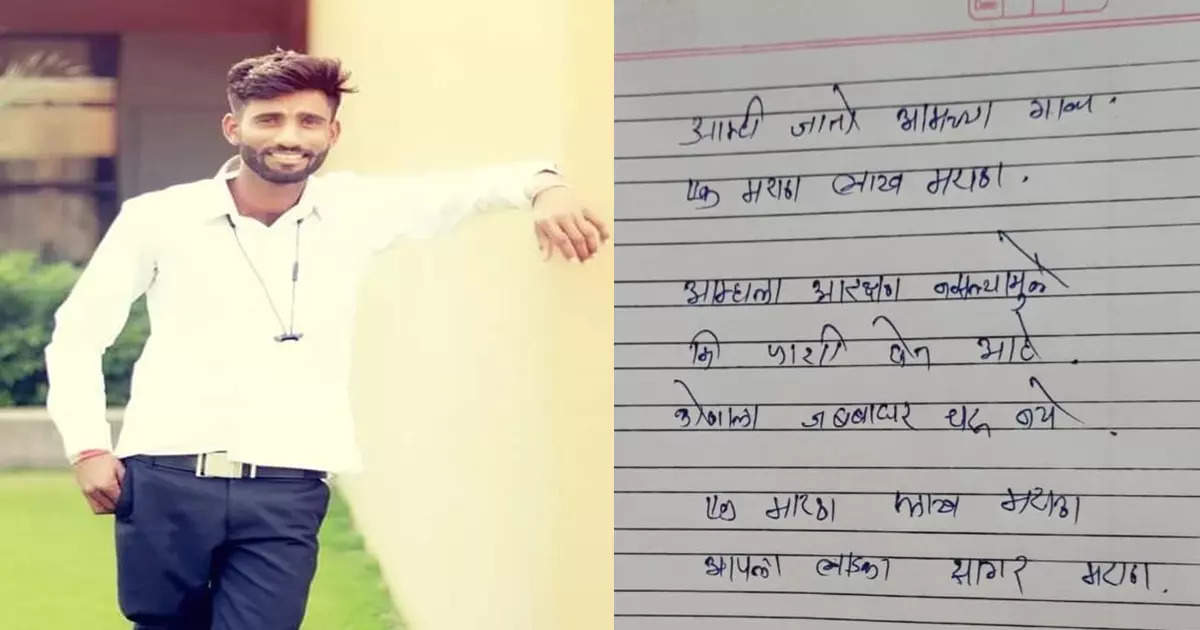 Date:
आम्ही जातो आमच्या गाव्य.
एक मराठा लाख मराठा.
आम्हाला आरक्षण नसल्यामुळे
मि फाशी घेत आहे.
कोणाला जबाबदार धरू नये.
एक मारठा लाख मराठा
आपला लाडका सागर मराठा.